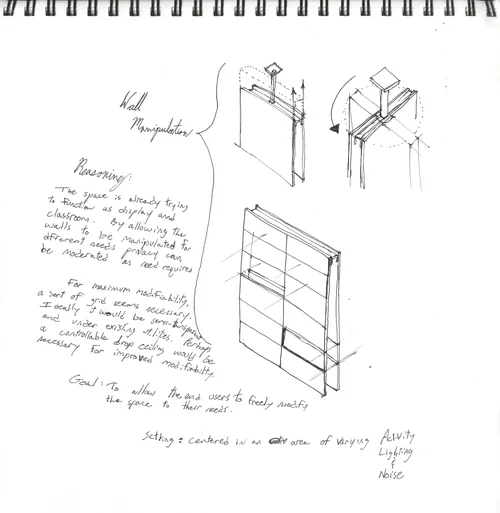 Wall
Manipulation
Reasoning:
The space is already trying
to function as display and
classroom. By allowing the
walls to be manipulated for
different needs privacy can
be moderated as need requires
For maximum modifiability,
a sort of grid seems necessary.
Ideally it would be semitransparent
and under existing utilities. Perhaps
a controllable drop ceiling would be
necessary for improved modifiability.
Goal: To allow the end users to freely modify
the space to their needs.
Setting: centered in an area of varying Activity
Lighting
&
Noise